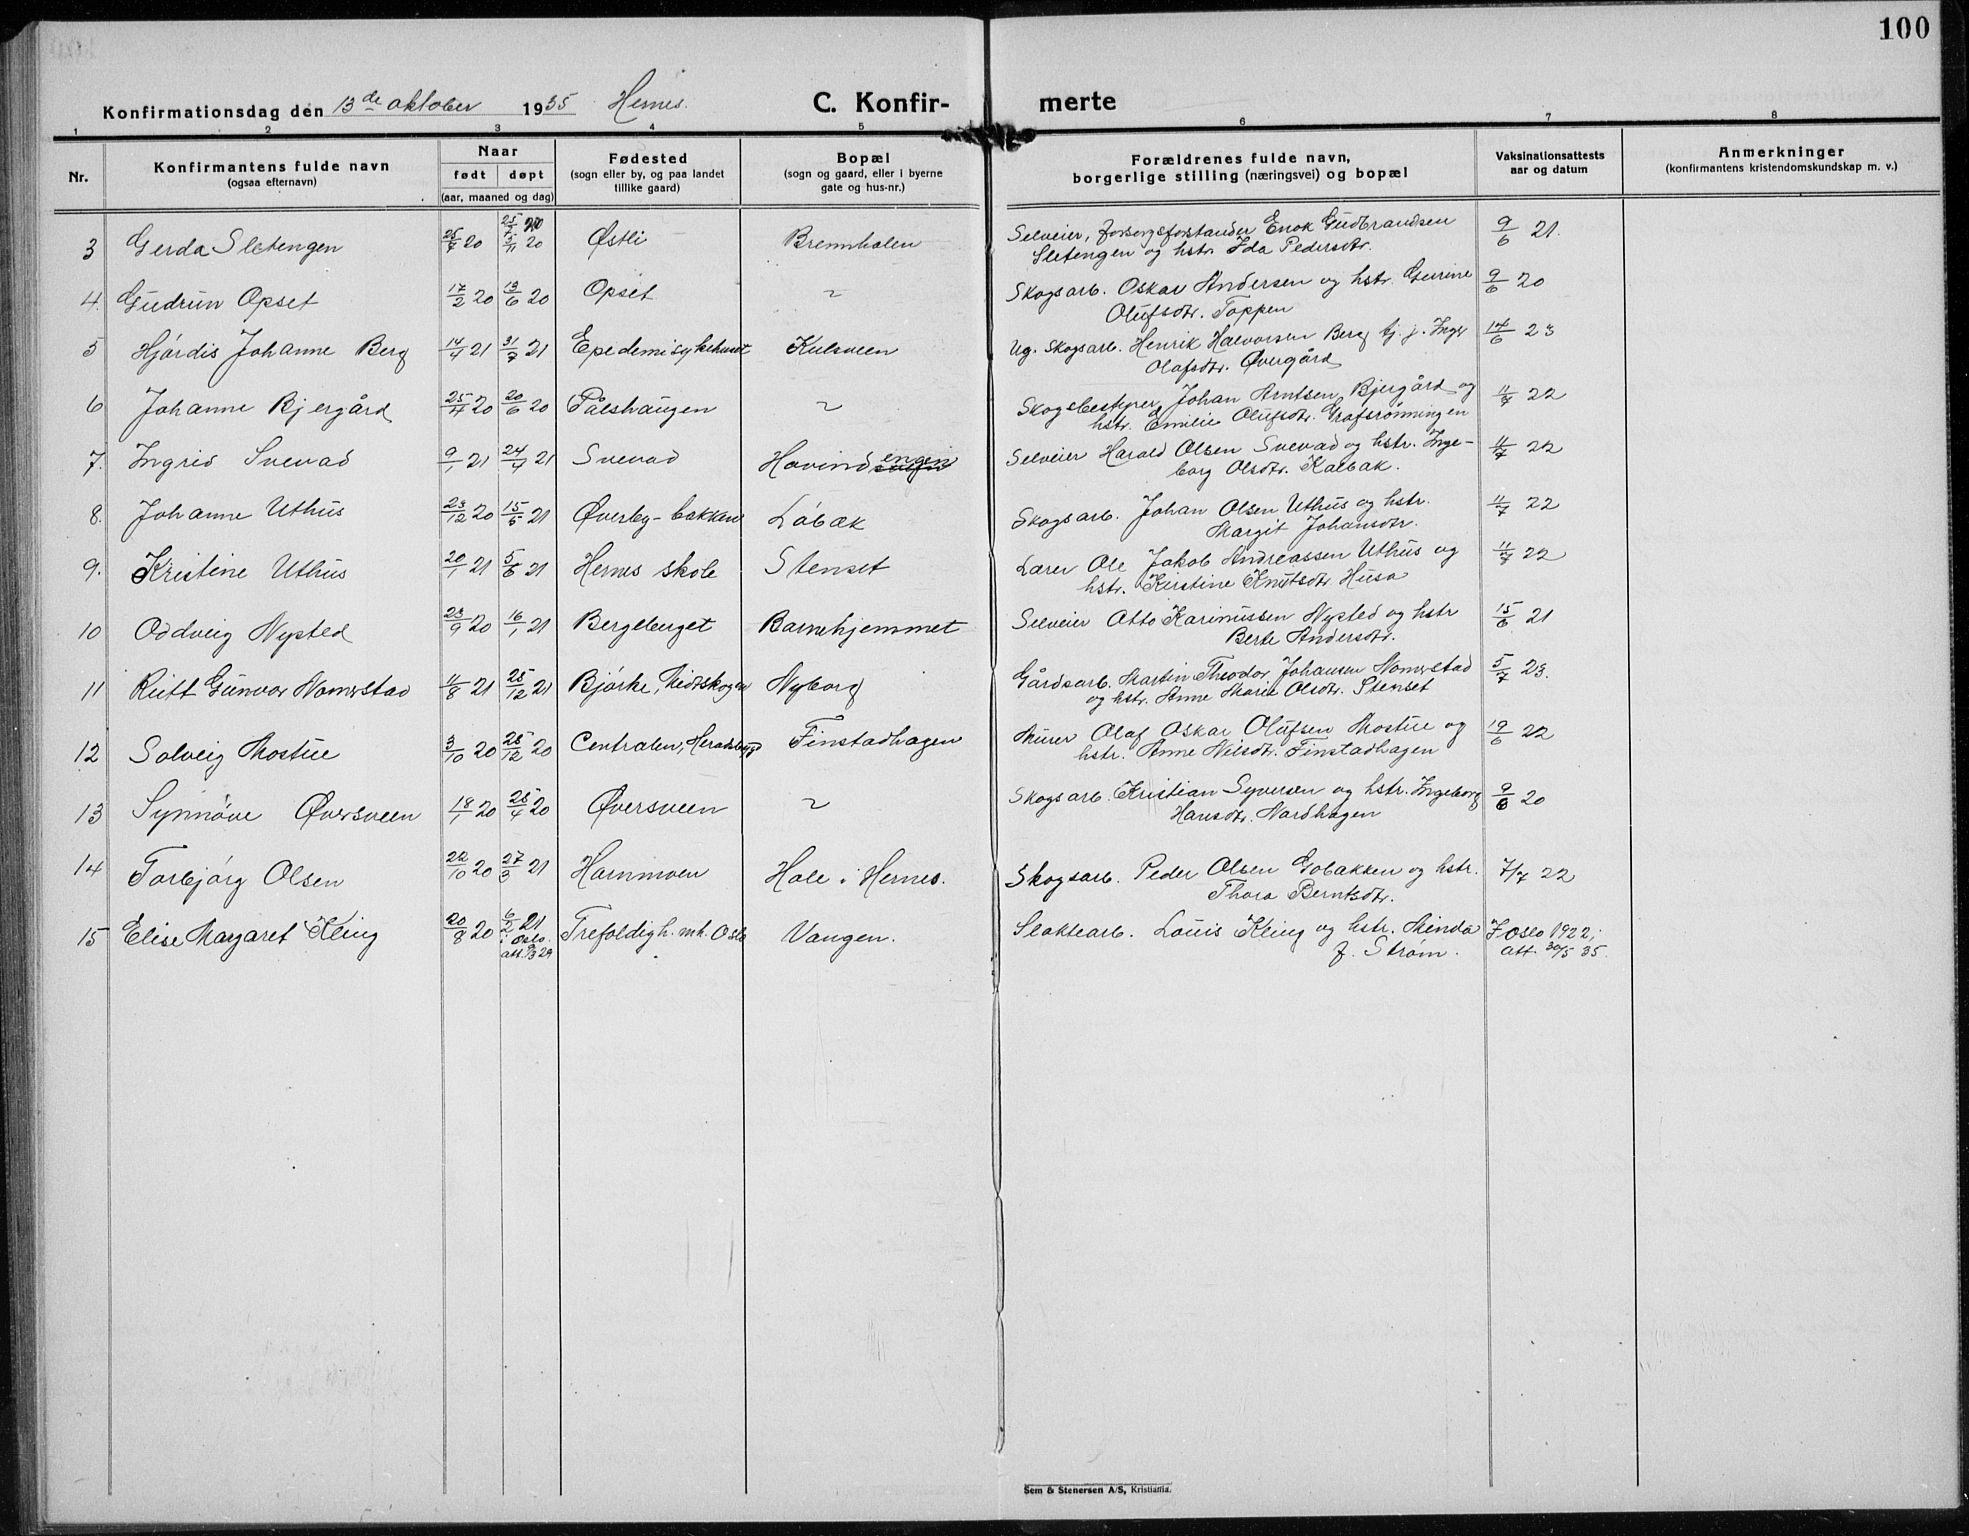 100
Konfirmationsdag den 13de oktober 1935 Hernes.
C. Konfir-
merte
1 2 3 4 5 6 7 8
Nr.
Konfirmantens fulde navn
(ogsaa efternavn)
Naar
født døpt
(aar, maaned og dag)
Fødested
(sogn eller by, og paa landet
tillike gaard)
Bopæl
(sogn og gaard, eller i byerne
gate og hus-nr.)
Forældrenes fulde navn,
borgerlige stilling (næringsvei) og bopæl
Vaksinationsattests
aar og datum
Anmerkninger
(konfirmantens kristendomskundskap m. v.)
3 Gerda Sletengen 20 20 Østli Brennhalen Selveier, forsorgsforstander Enok Gudbrandsen 9/6 21.
Sletengen og hstr. Ida Pedersdtr.
4. Gudrun Opset 17/2 20 13/6 20 Opset ~ Skogsarb. Oskar Andersen og hstr. Gurine 9/6 20
Olufsdtr. Toppen
5 Hjørdis Johanne Berg 14/4 21 31/7 21 Epedemisykehuset Kulsveen Ug. Skogsarb. Henrik Halvorsen Berg tj. j. Inger 14/6 23
Olafsdtr. Øvergård
6 Johanne Bjergård 25/4 20 20/6 20 Pålshaugen ~ Skogsbestyrer Johan Arntsen Bjergård og 11/7 22
hstr. Emilie Olufsdtr. Grafsrønningen
7. Ingrid Svevad 9/1 21 24/4 21 Svevad Hovindengen Selveier Harald Olsen Svevad og hstr. Inge- 11/7 22
borg Olsdtr. Kalbak.
8. Johanne Uthus 23/12 20 15/5 21 Øverby-bakken Løbæk Skogsarb. Johan Olsen Uthus og hstr. 11/7 22
Margit Johansdtr.
9. Kristine Uthus 20/1 21 5/6 21 Hernes skole Stenset Lærer Ole Jakob Andreassen Uthus og 11/7 22
hstr. Kirstine Knutsdtr. Husa
10 Oddveig Nysted 23/9 20 16/1 21 Bergeberget Barnehjemmet Selveier Otto Karinussen Nysted og hstr 15/6 21
Berte Andersdtr.
11 Rutt Gunvor Nomerstad 11/8 21 25/12 21 Bjørke, Midtskogen Nyborg Gårdsarb. Martin Theodor Johansen Nomerstad 5/7 23.
og hstr. Anne Marie Olsdtr. Stenset
12 Solveig Mostue 3/10 20 25/12 20 Centralen, Heradsbygd Finstadhagen Murer Olaf Oskar Olufsen Mostue og 19/6 22
hstr. Anne Nilsdtr. Finstadhagen
13 Synnøve Øversveen 18/1 20 25/4 20 Øversveen ~ Skogsarb. Kristian Syversen og hstr. Ingeborg 9/6 20
Hansdtr. Nordhagen
14 Torbjørg Olsen 22/10 20 27/3 21 Hammoen Hole i Hernes. Skogsarb. Peder Olsen Gobakken og hstr. 7/7 22
Thora Berntsdtr.
15 Elise Margaret Kling 20/8 20 6/2 21 Trefoldigh. mh. Oslo Vangen. Slaktearb. Louis Kling og hstr. Minda I Oslo 1922;
i Oslo. f. Strøm. att. 30/5 35.
att. 29
Sem & Stenersen A/S, Kristiania.